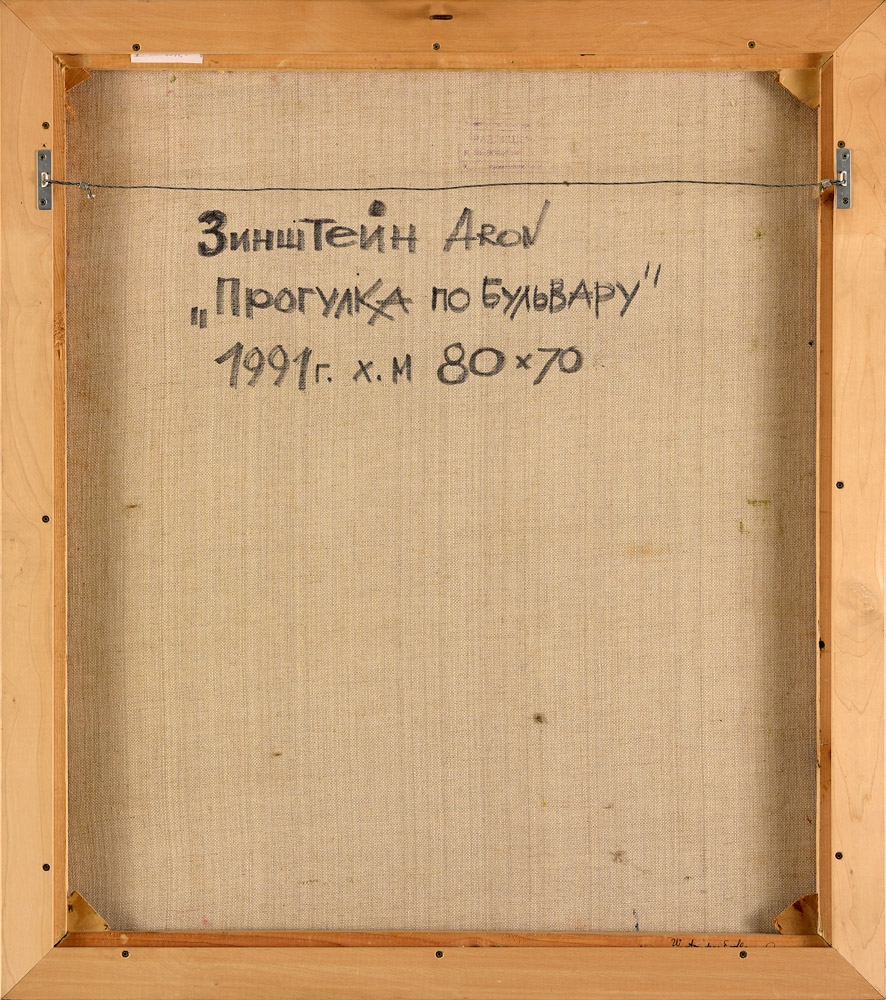 ЗинштЕйн ARON
„Прогулка по Бульвару"
1991г. х.м 80×70